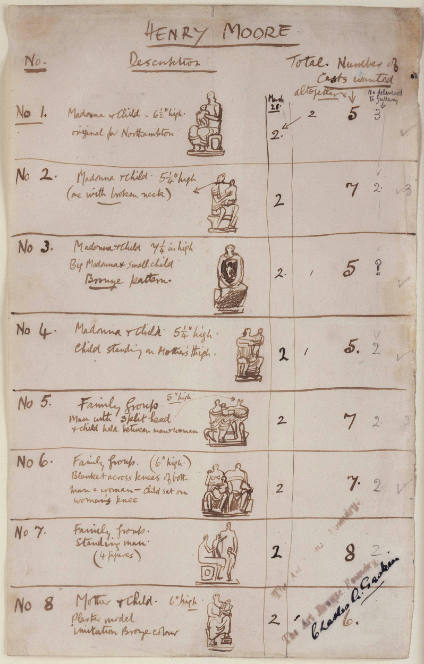 HENRY MOORE
No. Description Total Number of
Casts wanted
altogether
March
28.
No delivered
to gallery
No 1. Madonna & Child - 6½" high.
original for Northampton
2. 2 5 3
No 2. Madonna & Child 5¼" high
(one with broken neck)
2 7 2 3
No 3. Madonna & Child 7¼ in high
Big Madonna & small child
Bronze pattern.
2. 5 ?
No 4. Madonna & Child 5¼" high.
Child standing on Mother's thigh.
2 5. 2
No 5. Family Group 5" high
Man with Split head
& child held between man & woman
2 7 2
No 6. Family Group. (6" high)
Blanket across knees of both
man & woman - Child sat on
woman's knee
2 7 2
No 7. Family Group.
Standing man.
(4 figures)
2 8 2.
No 8 Mother & Child. 6" high
Plaster model
imitation Bronze colour
2 - 6.
The Art Bronze Foundry.